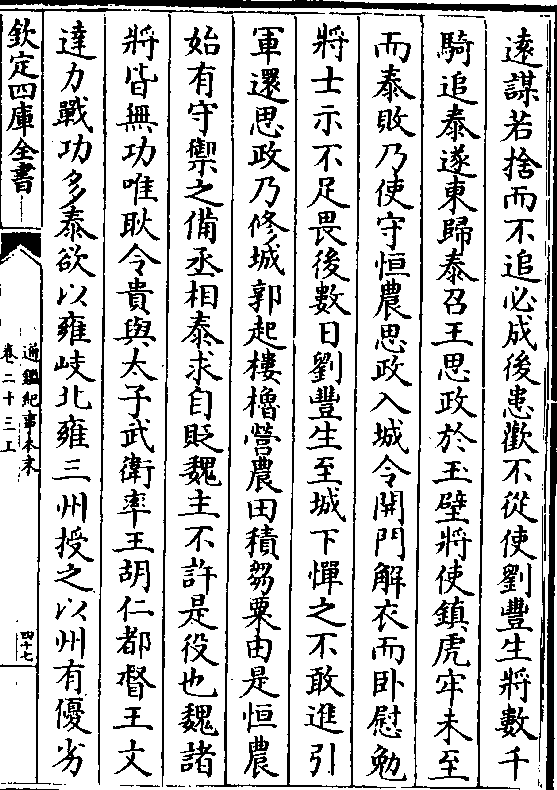 逺謀若捨而不追必成後患歡不從使劉豐生將數千
騎追泰遂東歸泰召王思政於玉壁將使鎮虎牢未至
而泰敗乃使守恒農思政入城令開門解衣而卧慰勉
將士示不足畏後數日劉豐生至城下憚之不敢進引
軍還思政乃修城郭起樓櫓營農田積芻粟由是恒農
始有守禦之備丞相泰求自貶魏主不許是役也魏諸
將皆無功唯耿令貴與太子武衛率王胡仁都督王文
達力戰功多泰欲以雍岐北雍三州授之以州有優劣
欽定四庫全書
通鑑紀事本末
卷二十三上
四十七